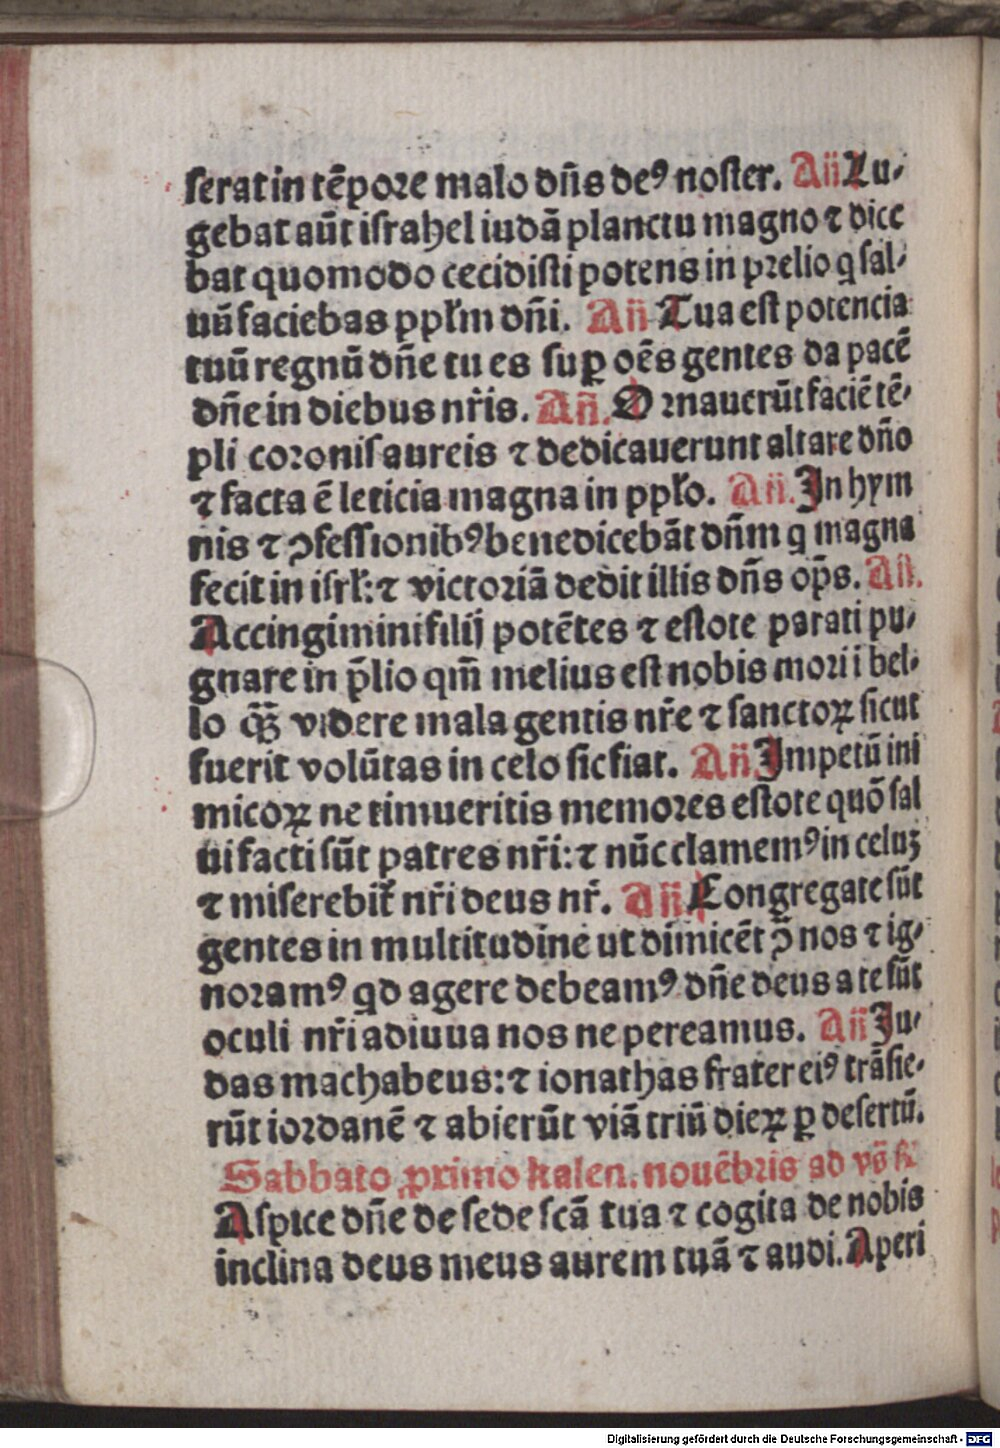 serat in tẽpore malo dñs deꝰ noster. Añ Lu⸗
gebat aũt israhel iudã planctu magno ⁊ dice
bat quomodo cecidisti potens in prelio q sal⸗
uũ faciebas ppľm dñi. Añ Tua est potencia
tuũ regnũ dñe tu es suꝑ oẽs gentes da pacẽ
dñe in diebus nr̃is. Añ. Ornauerũt faciẽ tẽ⸗
pli coronis aureis ⁊ dedicauerunt altare dño
⁊ facta ẽ leticia magna in ppľo. Añ. In hym
nis ⁊ ꝯfessionibꝰ benedicebãt dñm q magna
fecit in isrľ: ⁊ victoriã dedit illis dñs op̃s. Añ.
Accingimini filij potẽtes ⁊ estote parati pu⸗
gnare in p̃lio qm̃ melius est nobis mori i bel⸗
lo q̃ꝫ videre mala gentis nr̃e ⁊ sanctoꝝ sicut
fuerit volũtas in celo sic fiat. Añ Impetũ ini
micoꝝ ne timueritis memores estote quõ sal
ui facti sũt patres nr̃i: ⁊ nũc clamemꝰ in celuꝫ
⁊ miserebit̃ nr̃i deus nr̃. Añ Congregate sũt
gentes in multitudine ut dimicẽt ꝯ̃ nos ⁊ ig⸗
noramꝰ qd agere debeamꝰ dñe deus a te sũt
oculi nr̃i adiuua nos ne pereamus. Añ Ju⸗
das machabeus: ⁊ ionathas frater eiꝰ trãsie⸗
rũt iordanẽ ⁊ abierũt viã triũ dieꝝ ꝑ desertũ.
Sabbato primo kalen. nouẽbris ad vs̃
Aspice dñe de sede scã tua ⁊ cogita de nobis
inclina deus meus aurem tuã ⁊ audi. Aperi
Digitalisierung gefördert durch die Deutsche Forschungsgemeinschaft - DFG